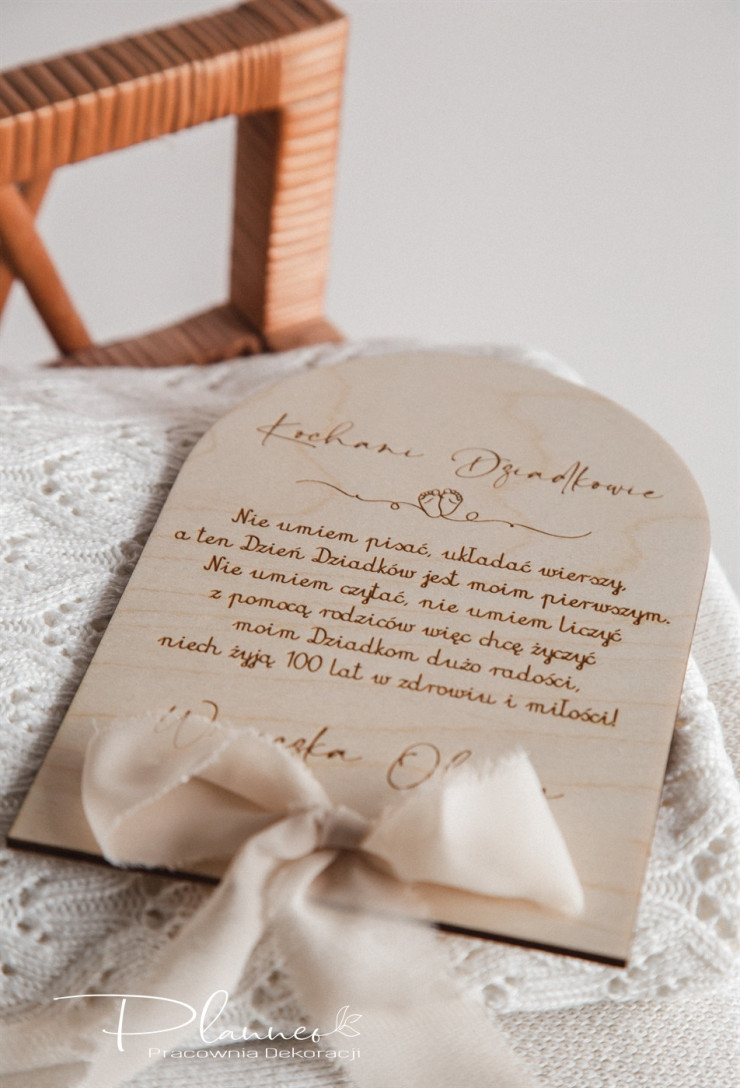 Kochani Dziadkowie
Nie umiem pisać, układać wierszy,
a ten Dzień Dziadków jest moim pierwszym.
Nie umiem czytać, nie umiem liczyć
z pomocą rodziców więc chcę życzyć
moim Dziadkom dużo radości,
niech żyją 100 lat w zdrowiu i miłości!
Planneo
Pracownia Dekoracji